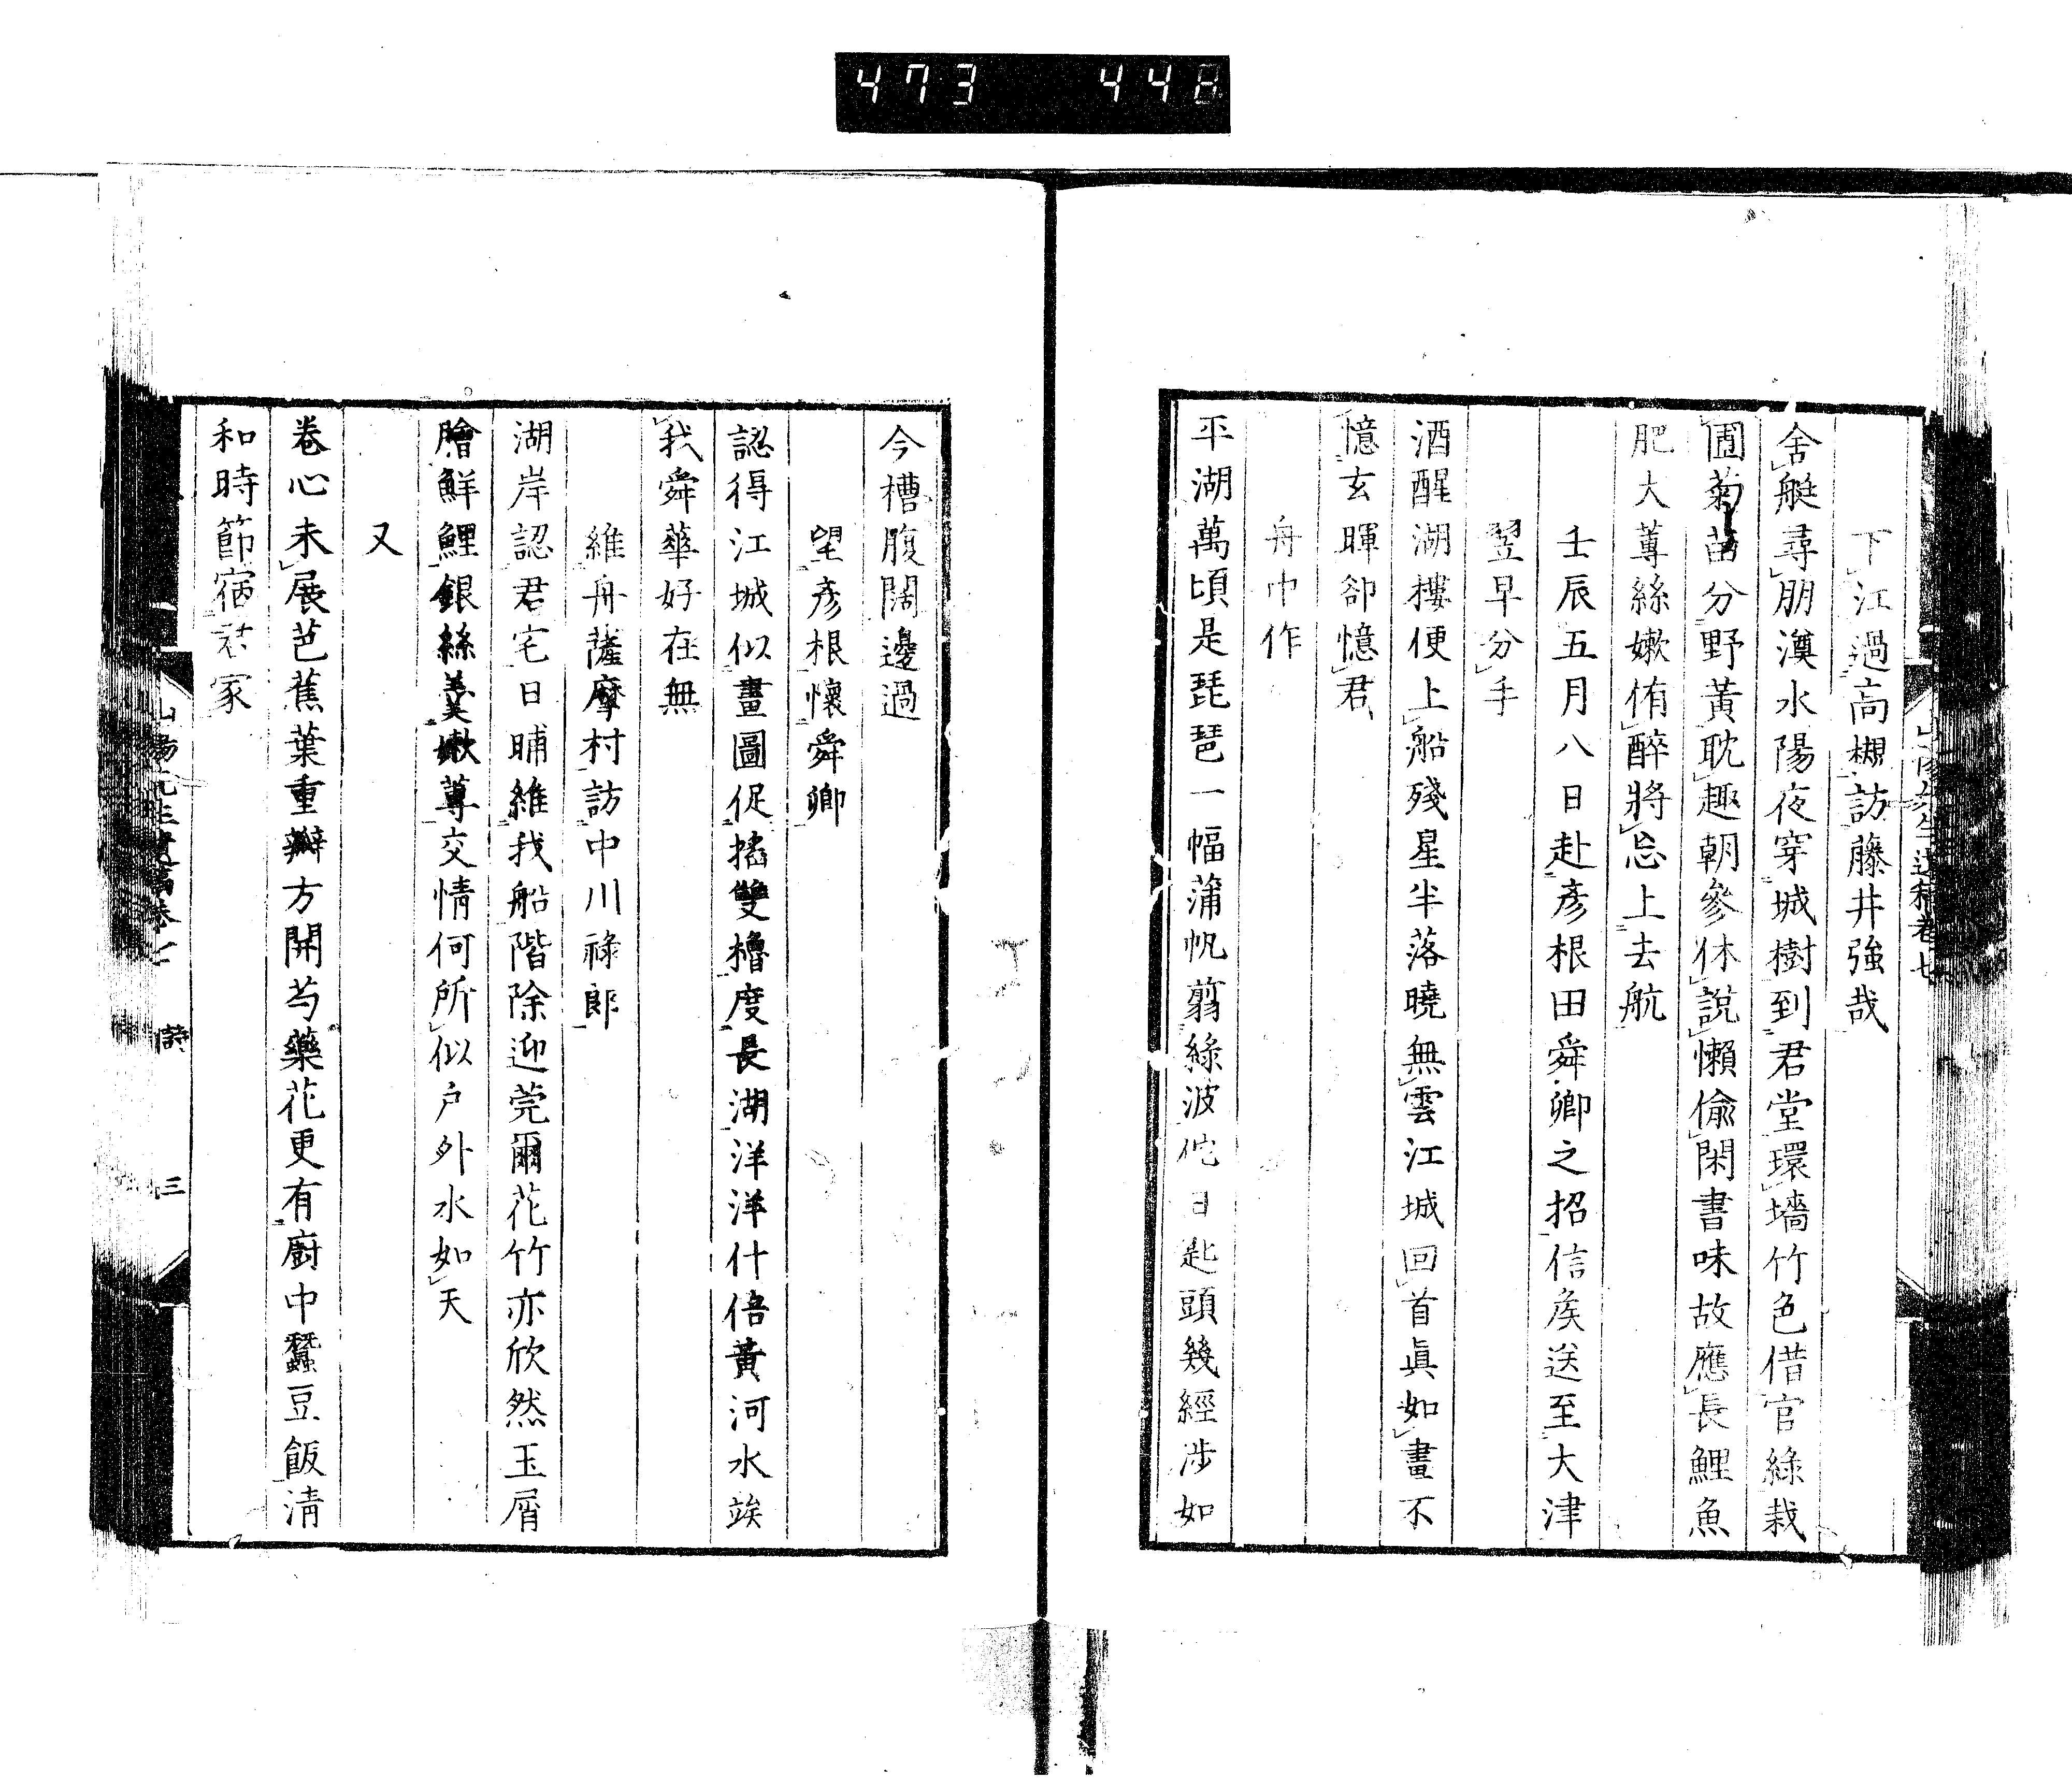 473 448
山陽先生遺稿卷七
下江過高槻訪藤井強哉
舍艇尋朋澳水陽夜穿城樹到君堂環墻竹色借官綠栽
圃菊苗分野黃耽趣朝參休說懶偸閑書味故應長鯉魚
肥大蓴絲嫩侑醉將忘上去航
壬辰五月八日赴彥根田舜卿之招信矦送至大津
翌早分手
酒醒湖樓便上船殘星半落曉無雲江城回首眞如畫不
憶玄暉卻憶君
舟中作
平湖萬頃是琵琶一幅蒲帆翦綠波佗日匙頭幾經涉如
今槽腹闊邊過
望彥根懷舜卿
認得江城似畫圖促搖雙櫓度長湖洋洋什倍黃河水竢
我舜華好在無
維舟薩摩村訪中川祿郎
湖岸認君宅日晡維我船階除迎莞爾花竹亦欣然玉屑
膾鮮鯉銀絲羹嫩蓴交情何所似戶外水如天
又
卷心未展芭蕉葉重瓣方開芍藥花更有廚中蠶豆飯淸
和時節宿君家
山陽先生遺稿卷七 詩 三